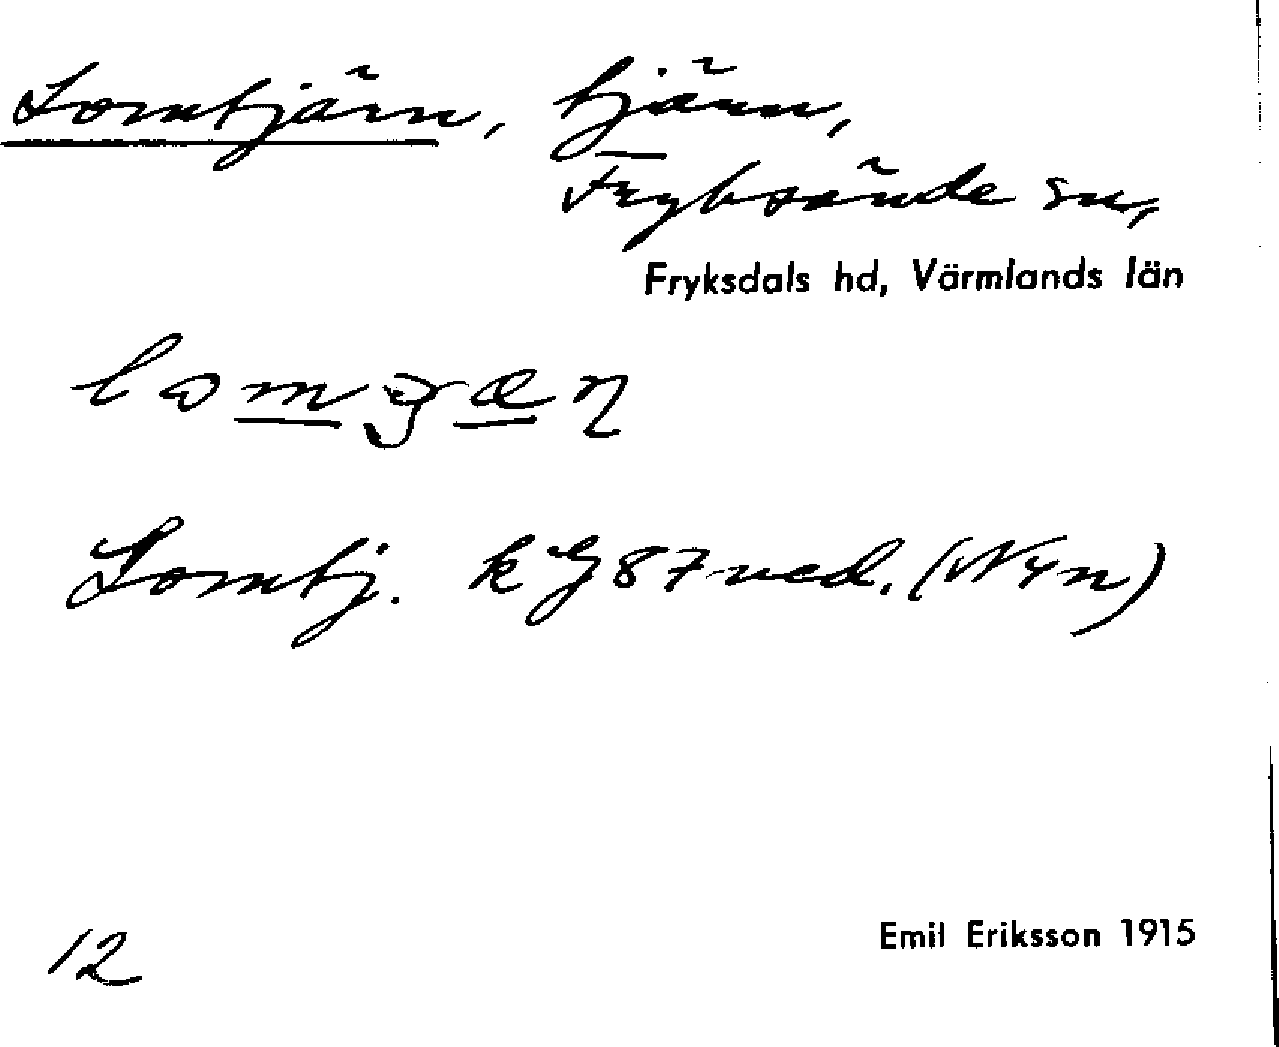 Lomtjärn, tjärn,
Fryksände sn,
Fryksdals hd, Värmlands län
Lomtj. k G 87 ned. (N Yn)
12
Emil Eriksson 1915